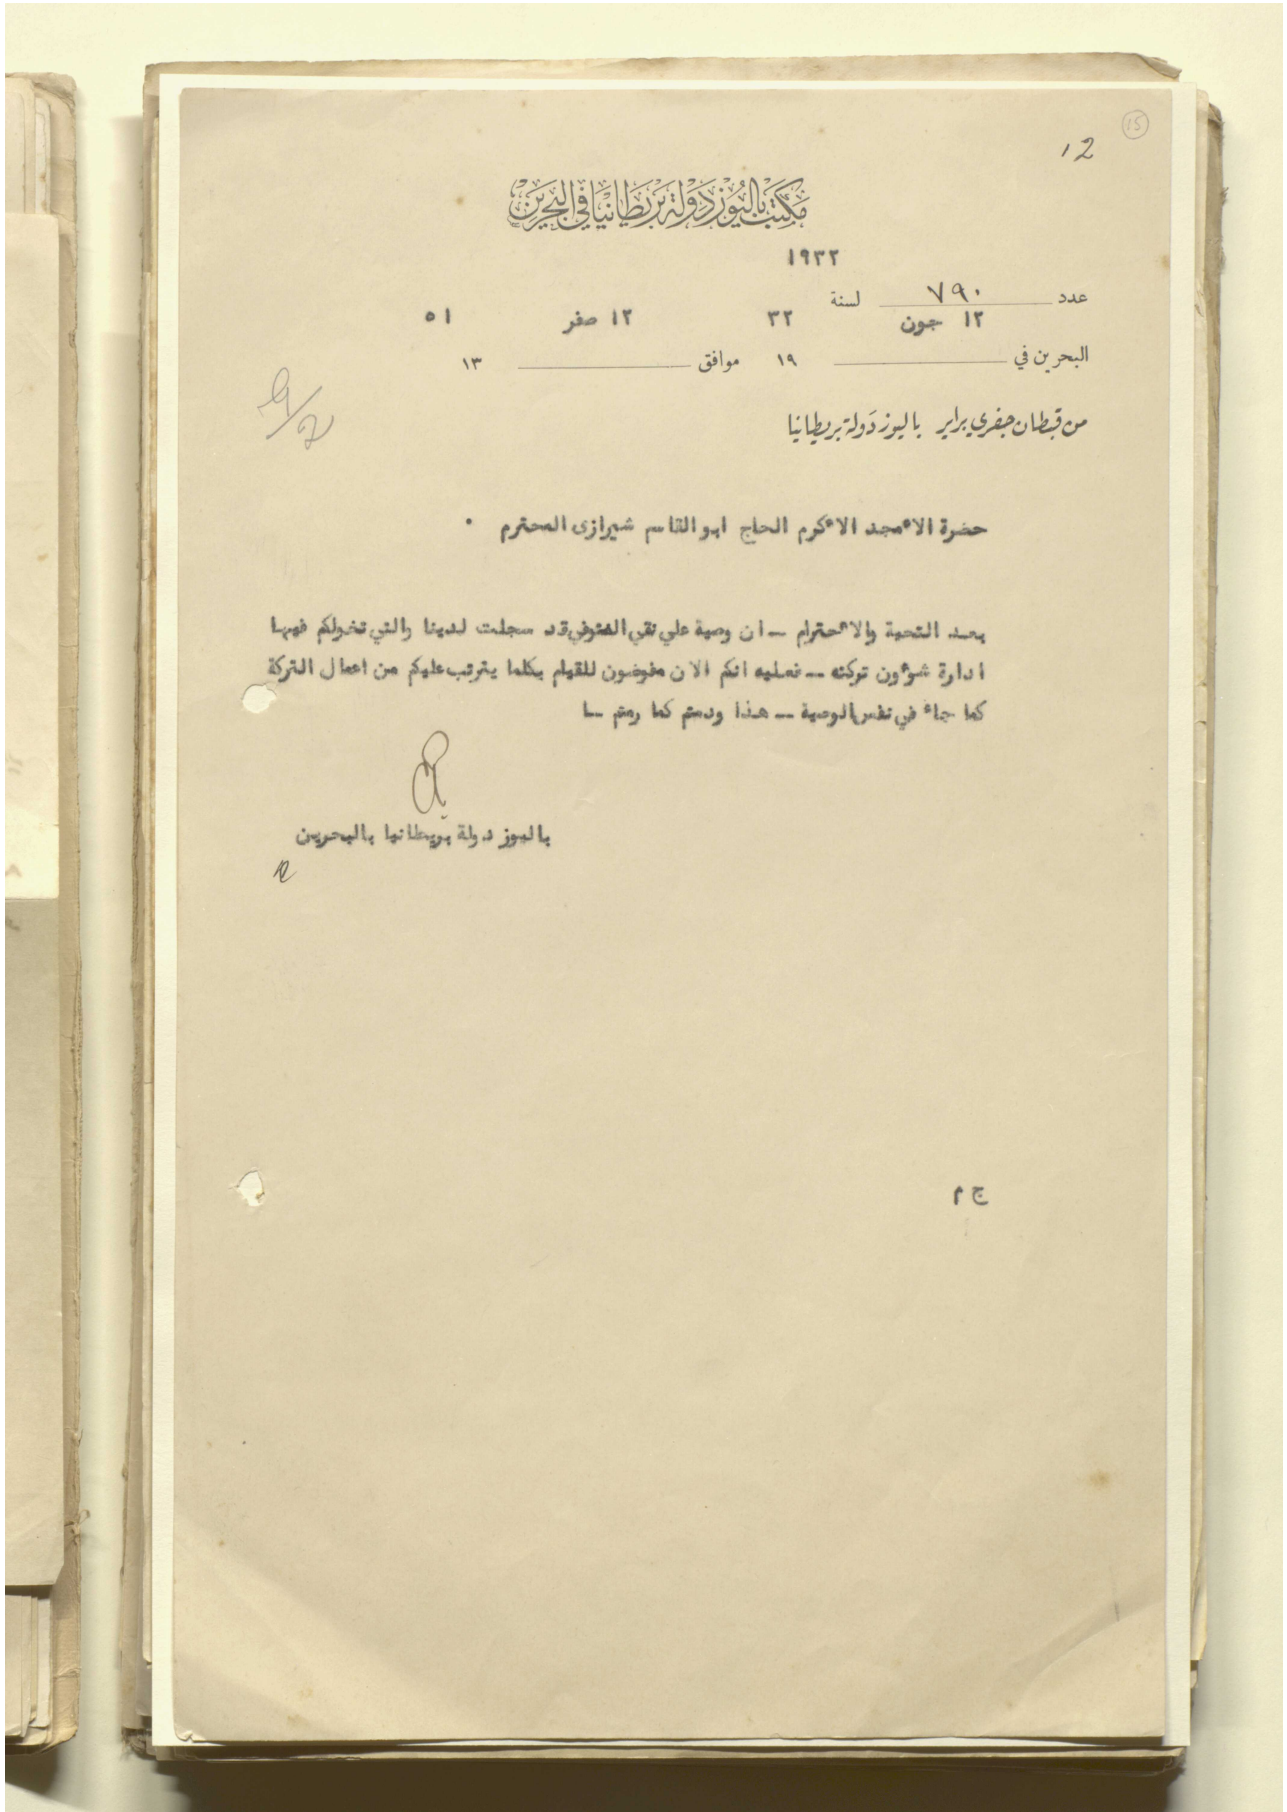 15
12
مكتب باليوز دولة بريطانيا في البحرين
١٩٣٢
عدد ٧٩٠ لسنة
١٢ جون ٣٢ ١٢ صفر ٥١
البحرين في ١٩ موافق ١٣
من قبطان جفري براير باليوز دولة بريطانيا
حضرة الأمجد الأكرم الحاج ابوالقاسم شيرازى المحترم .
بعد التحية والاحترام – ان وصية علي نقي المتوفي قد سجلت لدينا والتي تخولكم فيها
ادارة شؤون تركته – فعليه انكم الان مفوضون للقيام بكلما يترتب عليكم من اعمال التركة
كما جاء في نفس الوصية – هذا ودمتم كما رمتم –
باليوز دولة بريطانيا بالبحرين
ج م